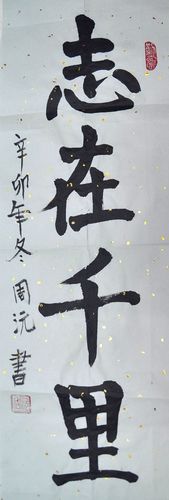 志在千里
辛卯年冬 周沅 書